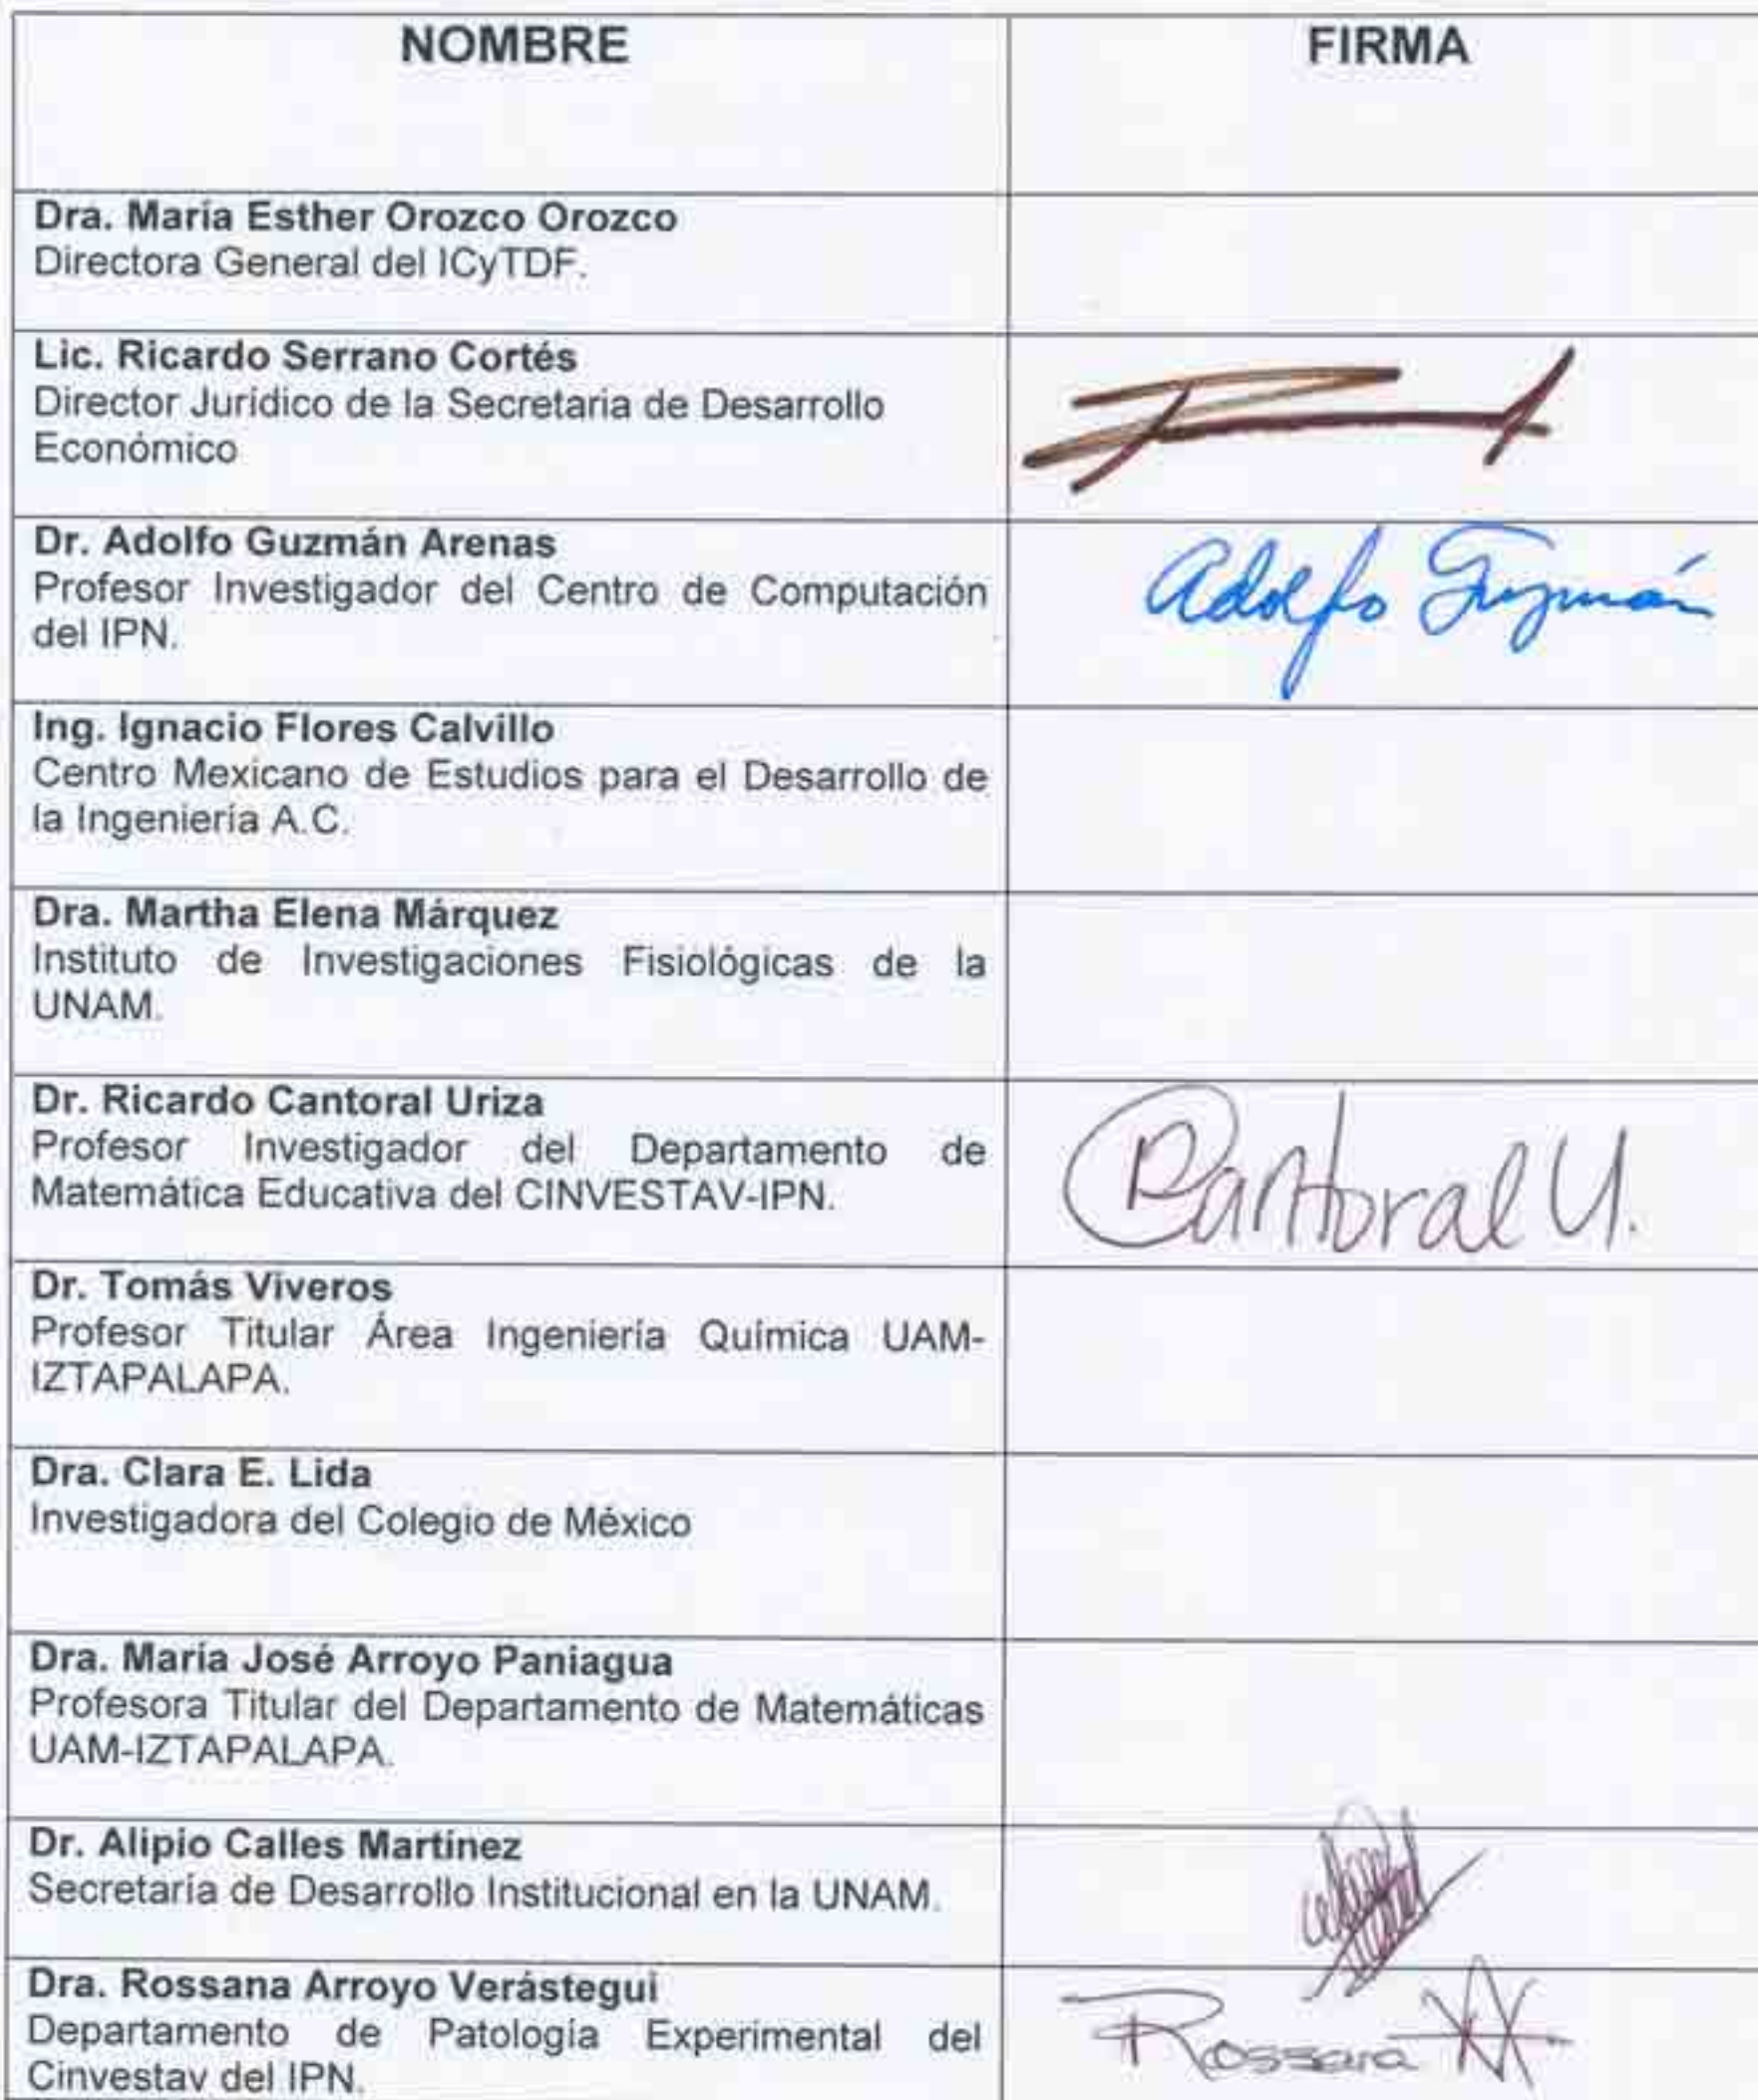 NOMBRE FIRMA
Dra. María Esther Orozco Orozco
Directora General del ICyTDF.
Lic. Ricardo Serrano Cortés
Director Jurídico de la Secretaria de Desarrollo
Económico
Dr. Adolfo Guzmán Arenas
Profesor Investigador del Centro de Computación
del IPN.
Adolfo Guzmán
Ing. Ignacio Flores Calvillo
Centro Mexicano de Estudios para el Desarrollo de
la Ingeniería A.C.
Dra. Martha Elena Márquez
Instituto de Investigaciones Fisiológicas de la
UNAM.
Dr. Ricardo Cantoral Uriza
Profesor Investigador del Departamento de
Matemática Educativa del CINVESTAV-IPN.
Cantoral U.
Dr. Tomás Viveros
Profesor Titular Área Ingeniería Química UAM-
IZTAPALAPA.
Dra. Clara E. Lida
Investigadora del Colegio de México
Dra. María José Arroyo Paniagua
Profesora Titular del Departamento de Matemáticas
UAM-IZTAPALAPA.
Dr. Alipio Calles Martínez
Secretaría de Desarrollo Institucional en la UNAM.
Dra. Rossana Arroyo Verástegui
Departamento de Patología Experimental del
Cinvestav del IPN.
Rossana